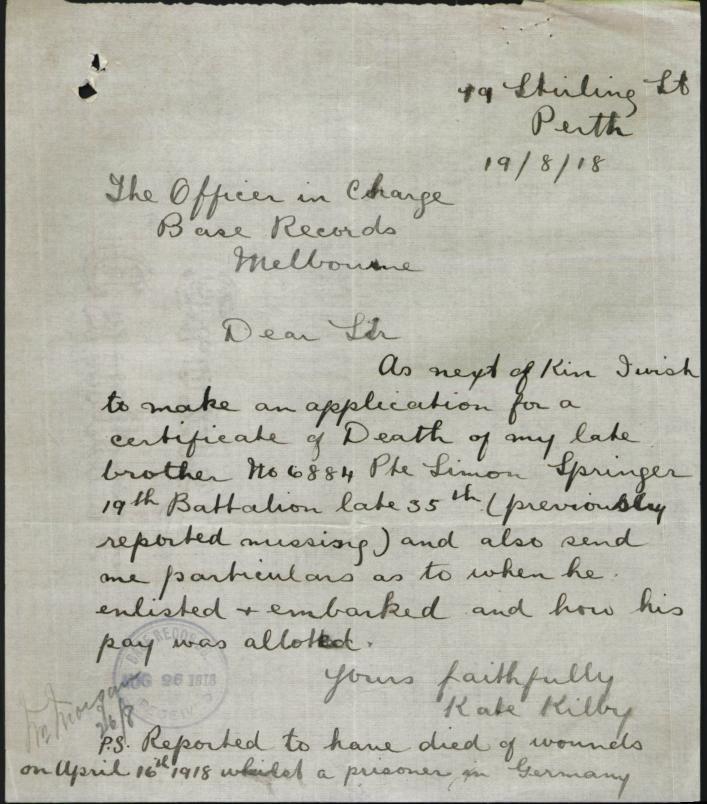 79 Stirling St
Perth
19/8/18
The Officer in Charge
Base Records
Melbourne
Dear Sir
As next of Kin I wish
to make an application for a
certificate of Death of my late
brother No 6884 Pte Simon Springer
19th Battalion late 35th (previously
reported missing) and also send
me particulars as to when he
enlisted + embarked and how his
pay was allotted.
Yours faithfully
Kate Kilby
BASE RECORDS
AUG 26 1918
RECEIVED
Mr Morgan
26/8
P.S. Reported to have died of wounds
on April 16th 1918 whilst a prisoner in Germany